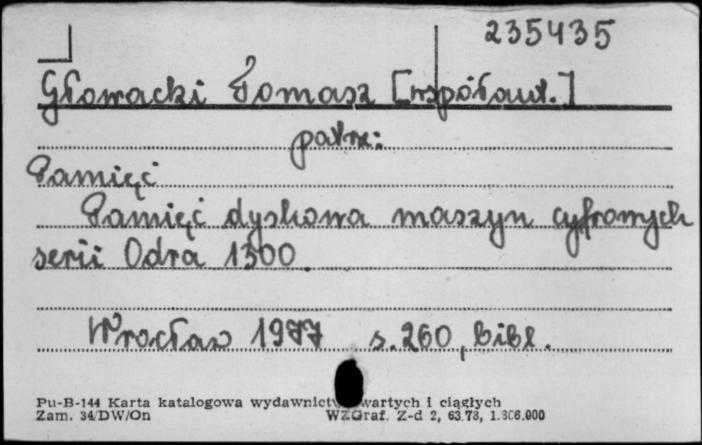 235435
Głowacki Tomasz [współaut.]
patrz:
Pamięć
Pamięć dyskowa maszyn cyfrowych
serii Odra 1300.
Wrocław 1977 s. 260, bibl.
Pu-B-144 Karta katalogowa wydawnictw zwartych i ciągłych
Zam. 34/DW/On WZGraf. Z-d 2, 63.78, 1.306.000